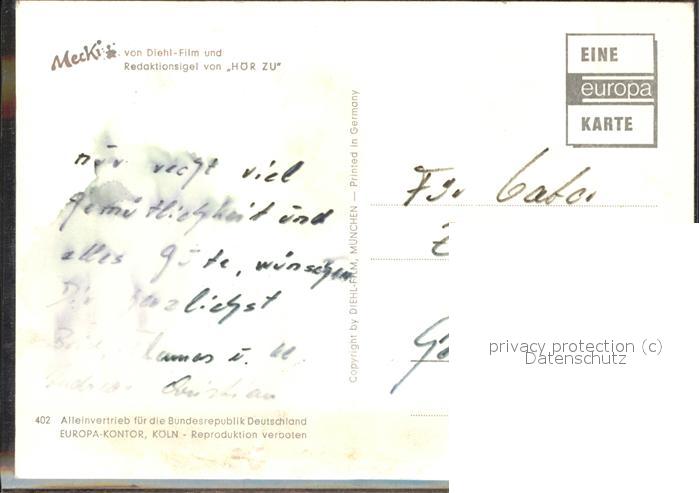 Mecki von Diehl-Film und
Redaktionsigel von „HÖR ZU"
EINE
europa
KARTE
nur recht viel
Gemütlichkeit und
alles Gute, wünschen
Dir herzlichst
Thomas u.
Christian
Für
Copyright by DIEHL-FILM, MÜNCHEN — Printed in Germany
privacy protection (c)
Datenschutz
402 Alleinvertrieb für die Bundesrepublik Deutschland
EUROPA-KONTOR, KÖLN - Reproduktion verboten